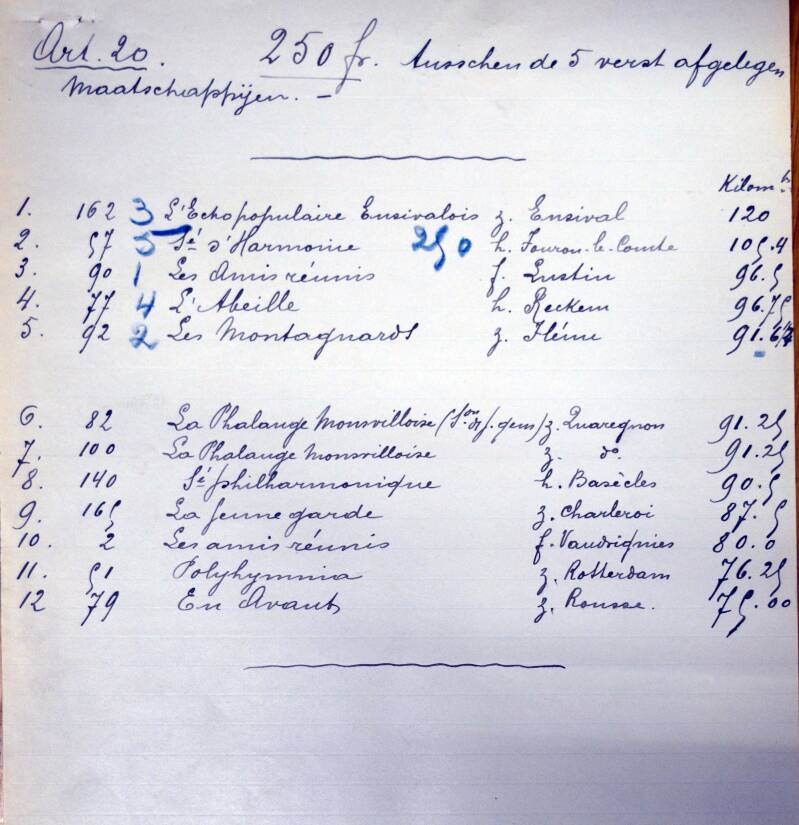 Art. 20. 250 fr. Tusschen de 5 verst afgelegen
Maatschappijen. -
Kilom
1. 162 3 L'Echo populaire Ensivalois z. Ensival 120
2. 57 5 Sté d'Harmonie 250 h. Fouron-le-Comte 105.4
3. 90 1 Les Amis réunis f. Lustin 96.5
4. 77 4 L'Abeille h. Reckem 96.75
5. 92 2 Les Montagnards z. 91.6
6. 82 La Phalange Monsvilloise z. Quaregnon 91.25
7. 100 La Phalange Monsvilloise z. do 91.25
8. 140 Sté philharmonique h. Basècles 90.5
9. 165 La jeune garde z. Charleroi 87.5
10. 2 Les amis réunis f. Vaudignies 80.0
11. 51 Polyhymnia z. Rotterdam 76.25
12 79 En Avant z. 75.00